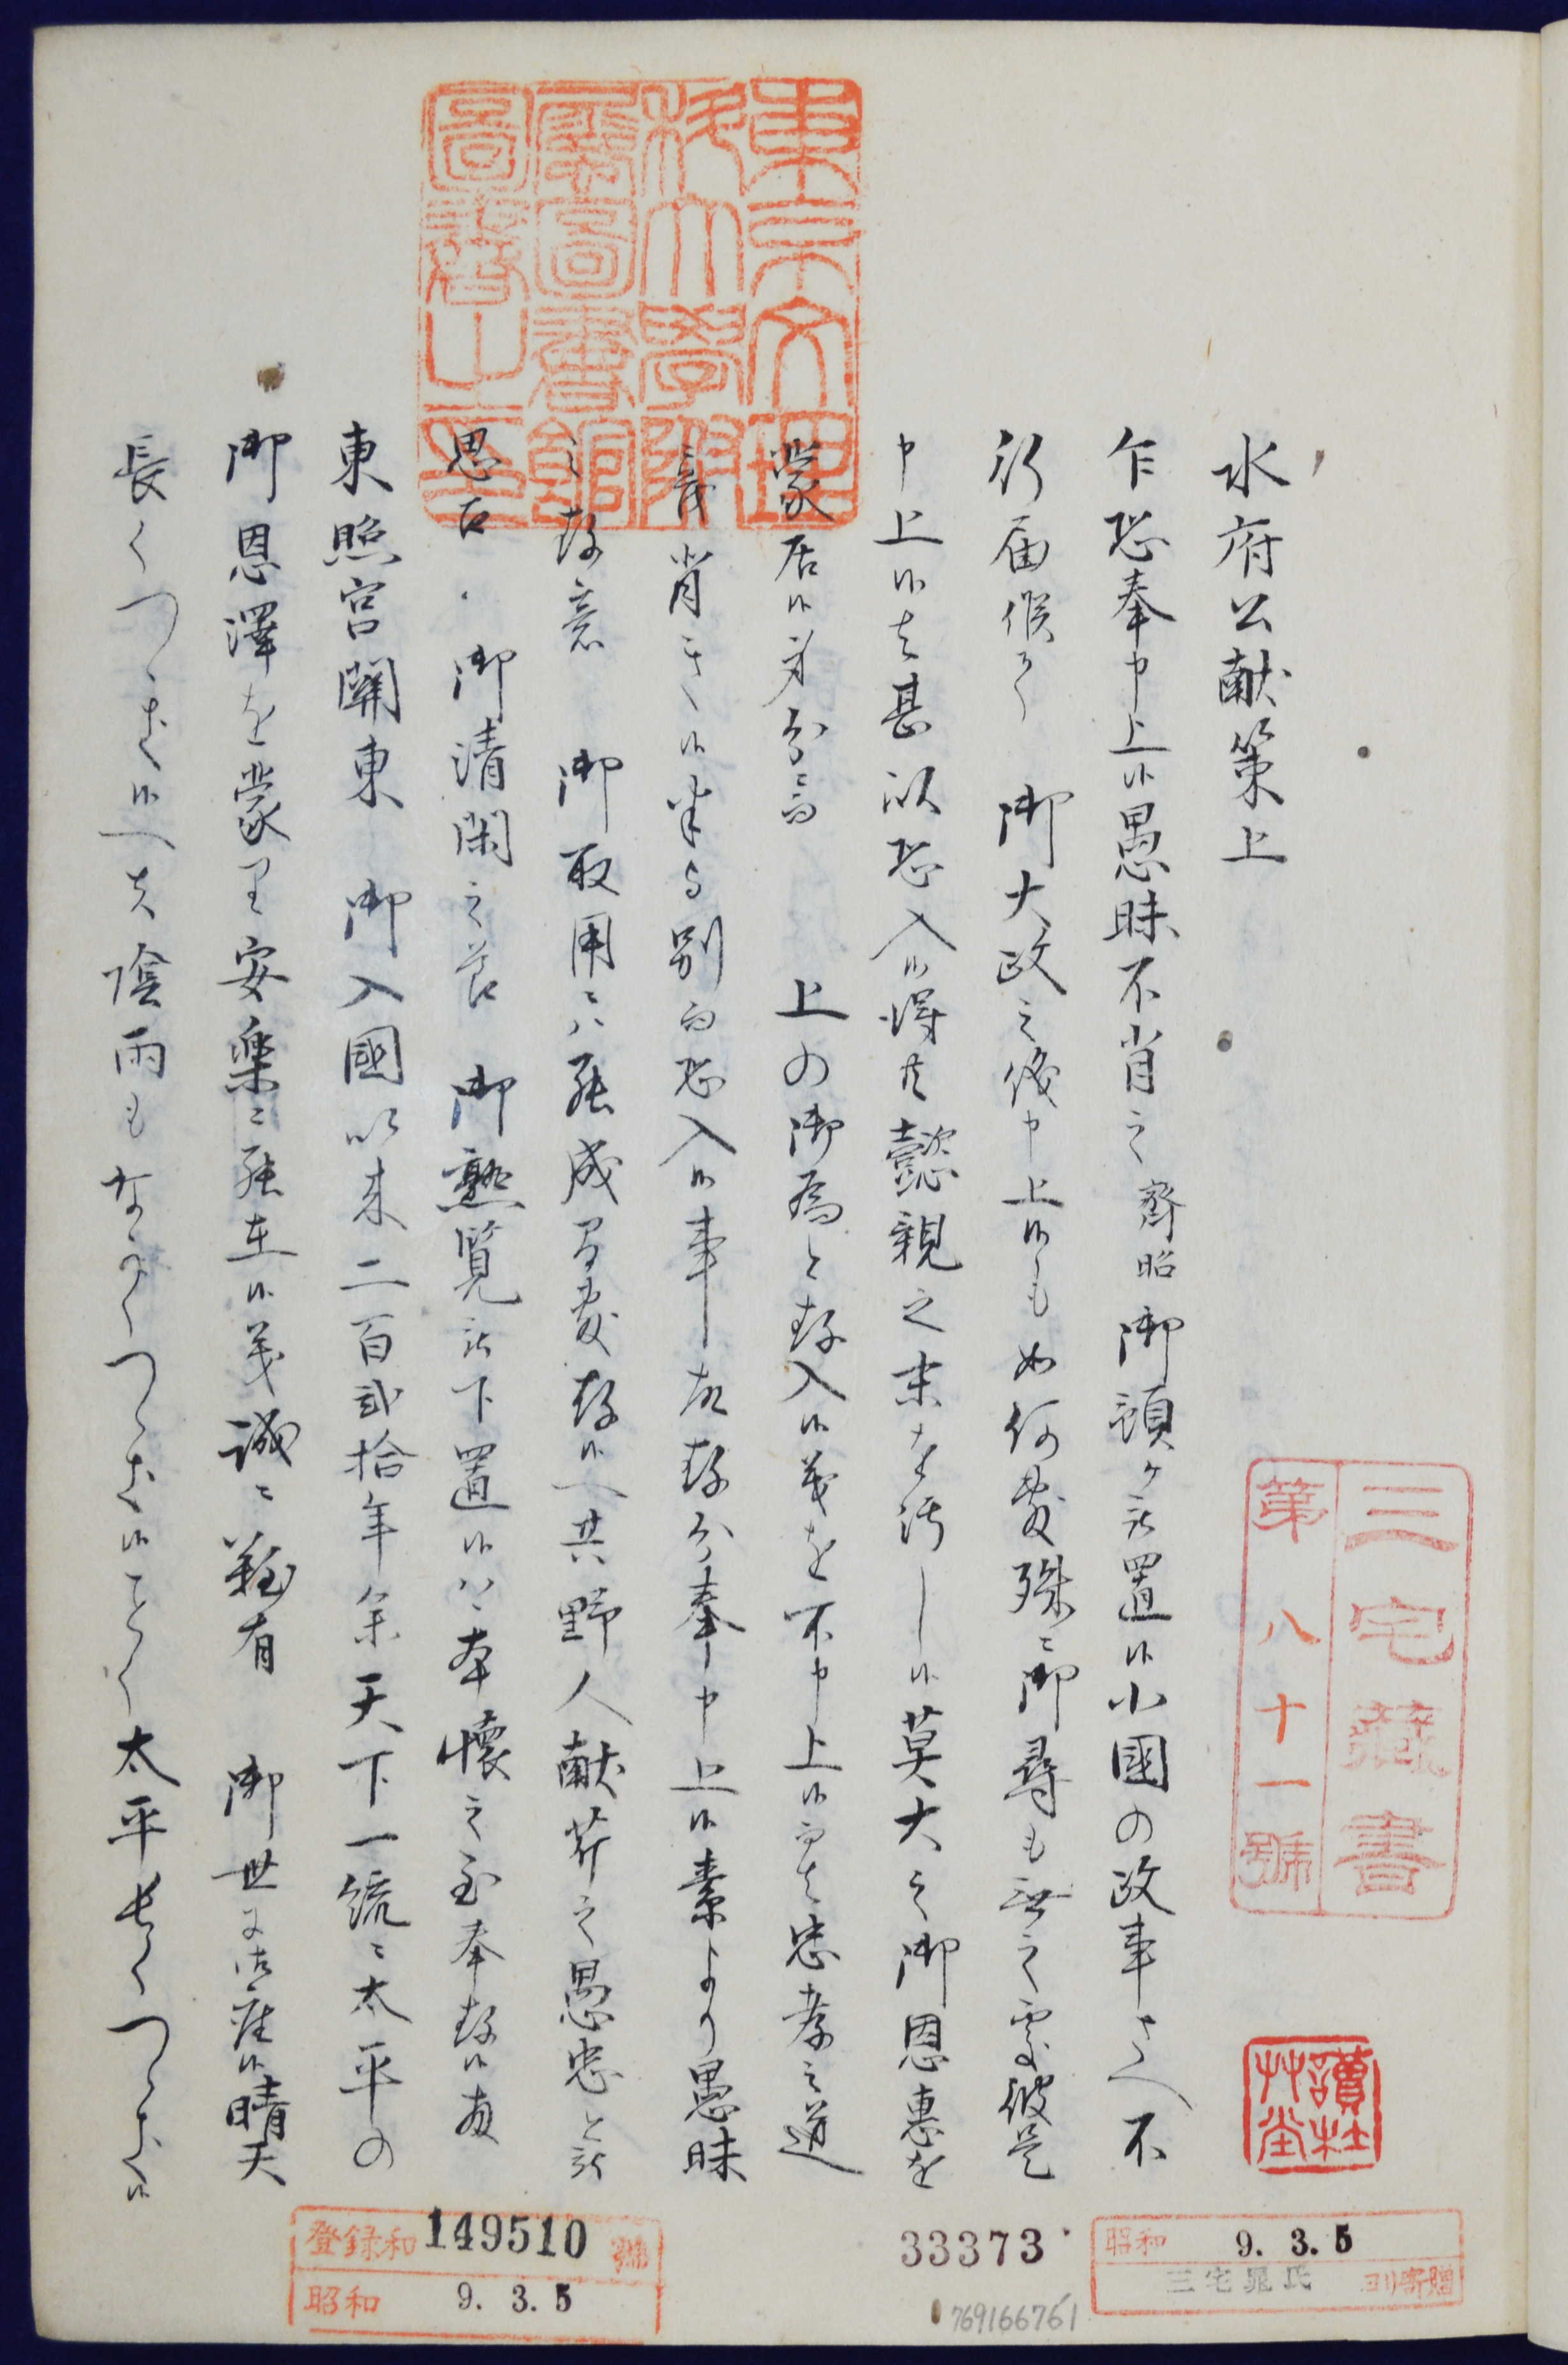 水府公献策上
乍恐奉申上候愚昧不肖之齊昭御預ケ被置候小國の政事さへ不
行届候て 御大政之儀申上候も如何敷殊ニ御尋も無之處彼是
申上候は甚以恐入候得共懿親之末を汚し候莫大之御恩惠を
蒙居候身分ニ而 上の御為と存入候義を不申上候而は忠孝之道
肖き候半與別而恐入候事故存分奉申上候素より愚昧
之存意 御取用ニハ相成間敷存候へ共野人献芹之愚忠と被
思召 御清閑之節 御熟覧被下置候ハヽ本懐之至奉存候扨
東照宮關東 御入國以来二百貳拾年余天下一統ニ太平の
御恩澤を蒙り安樂ニ相在候義誠ニ難有 御世ニ御座候晴天
長くつゝき候へは陰雨もなかくつゝき候ことく太平長くつゝき候
東京文理
科大學附
屬圖書館
圖書之印
三宅藏書
第八十一號
讀杜
艸堂
昭和 9.3.5
三宅 氏 ヨリ寄贈
33373
769166761
登録和 149510 號
昭和 9.3.5